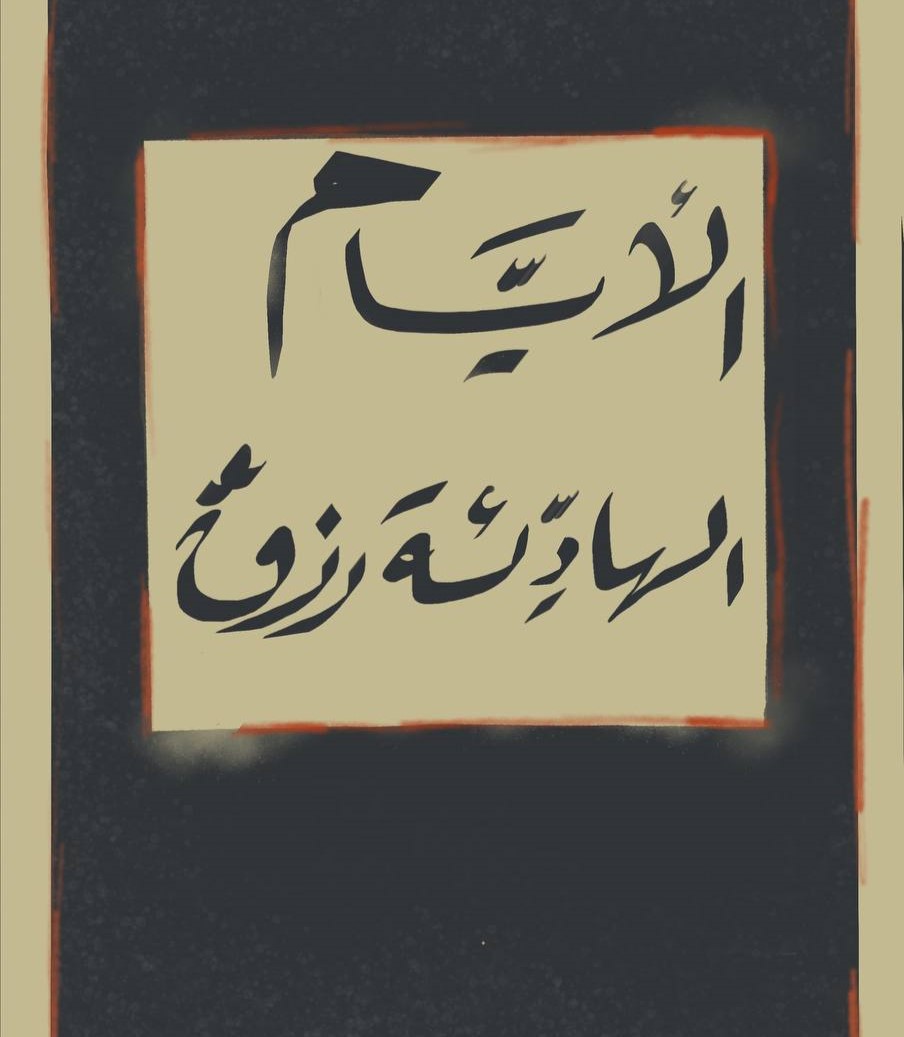 الأيَّام
الهادِّئة رزقٌ